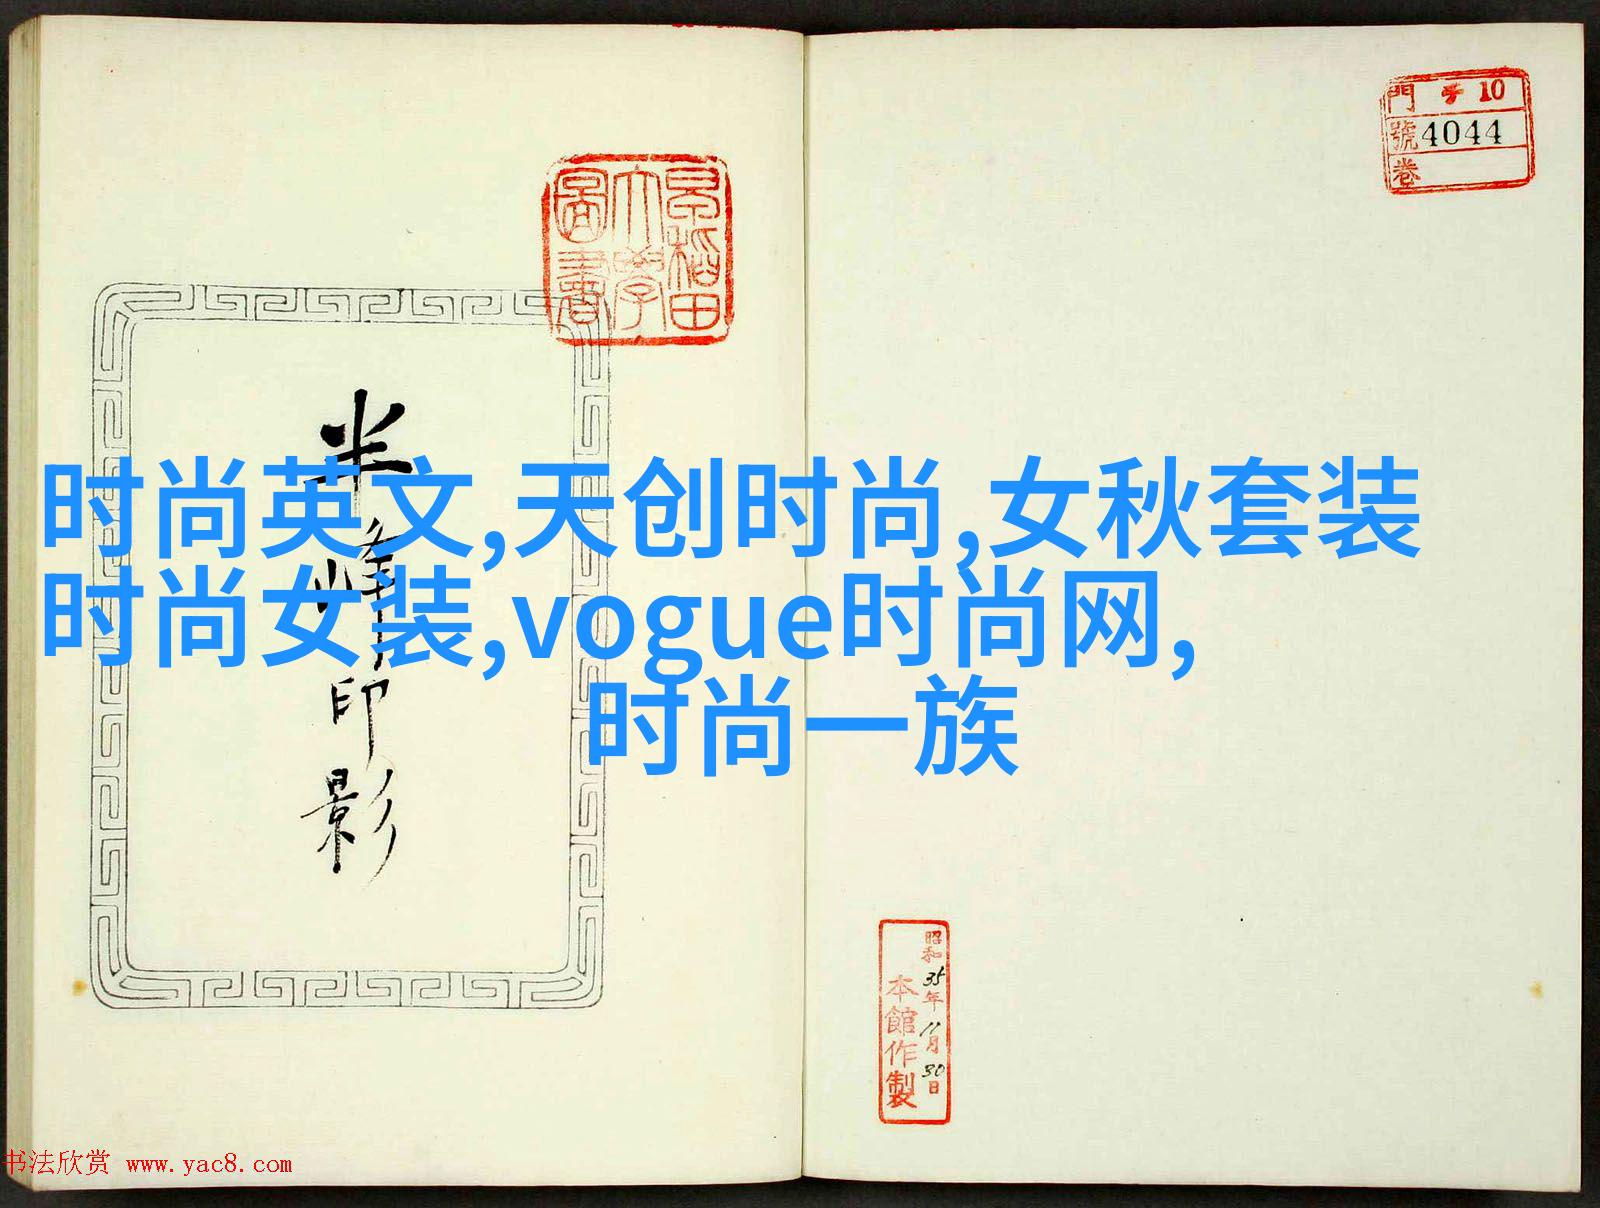 門 チ 10
號 4044
卷
早稻田
大學
圖書
半峰印影
时尚英文,天创时尚,女秋套装
时尚女装,vogue时尚网,
时尚一族
昭和35年11月30日
本館作製
书法欣赏 www.yac8.com